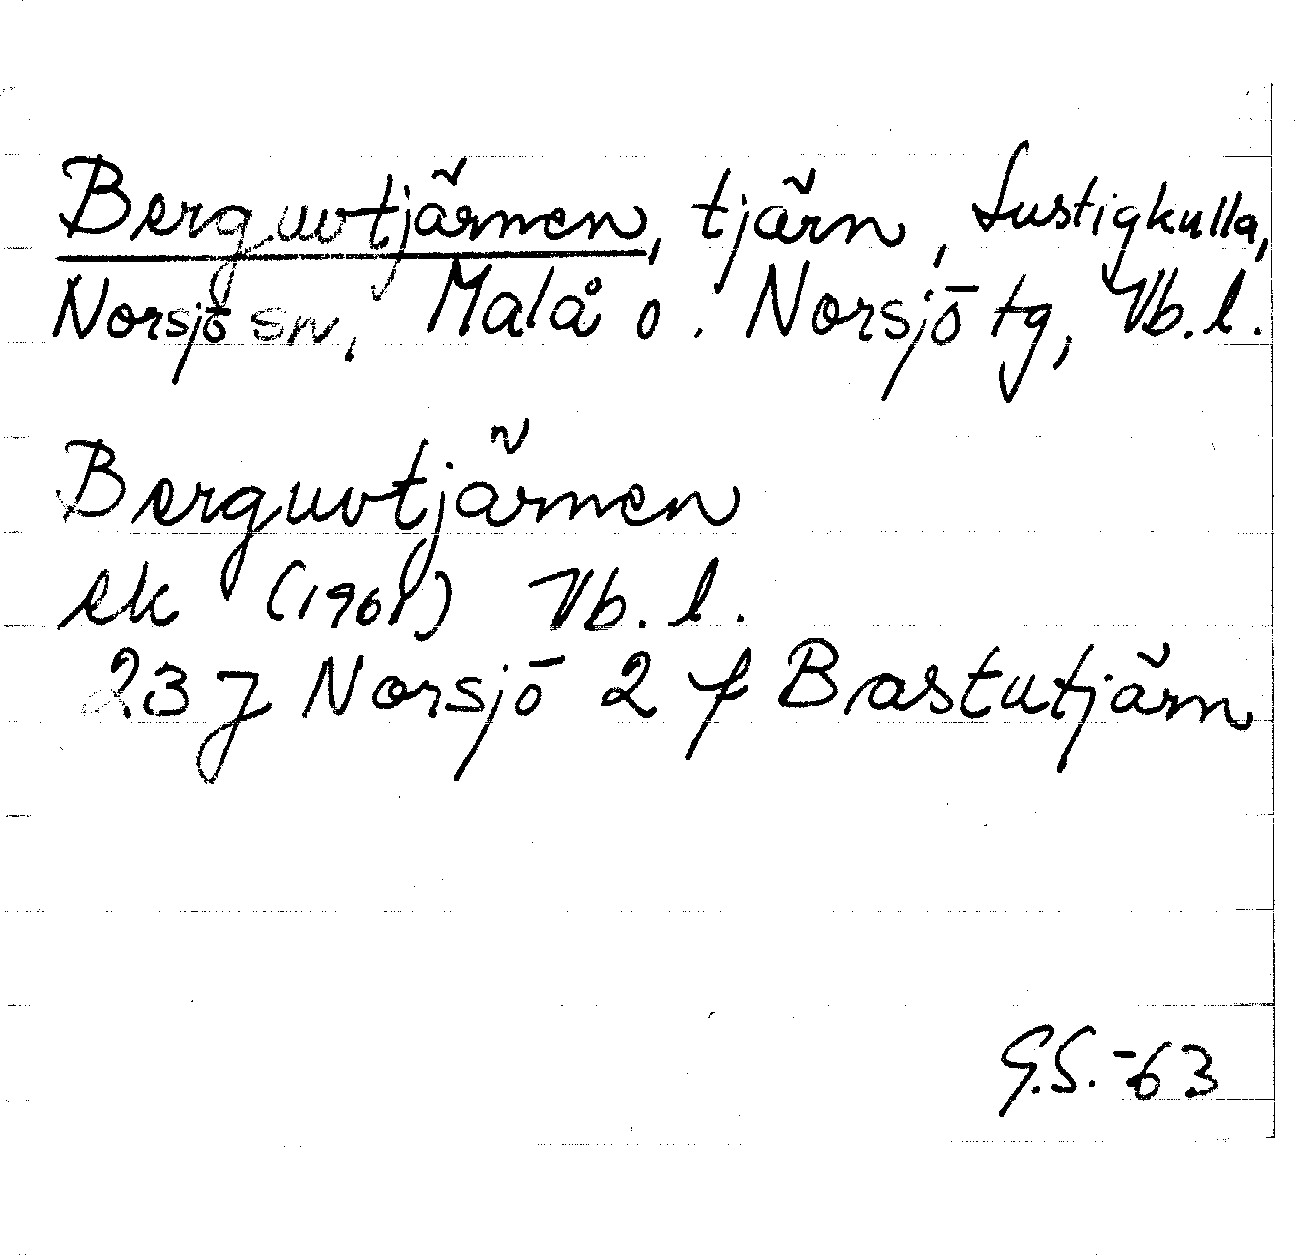 Berguvtjärnen, tjärn, Lustigkulla,
Norsjö sn, Malå o. Norsjö tg, Vb. l.
Berguvtjärnen
ek (1961) Vb. l.
23 J Norsjö 2 f Bastutjärn
G.S. -63